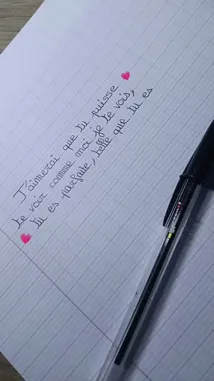 J'aimerai que tu puisse
te voir comme moi je te vois,
tu es parfaite, telle que tu es